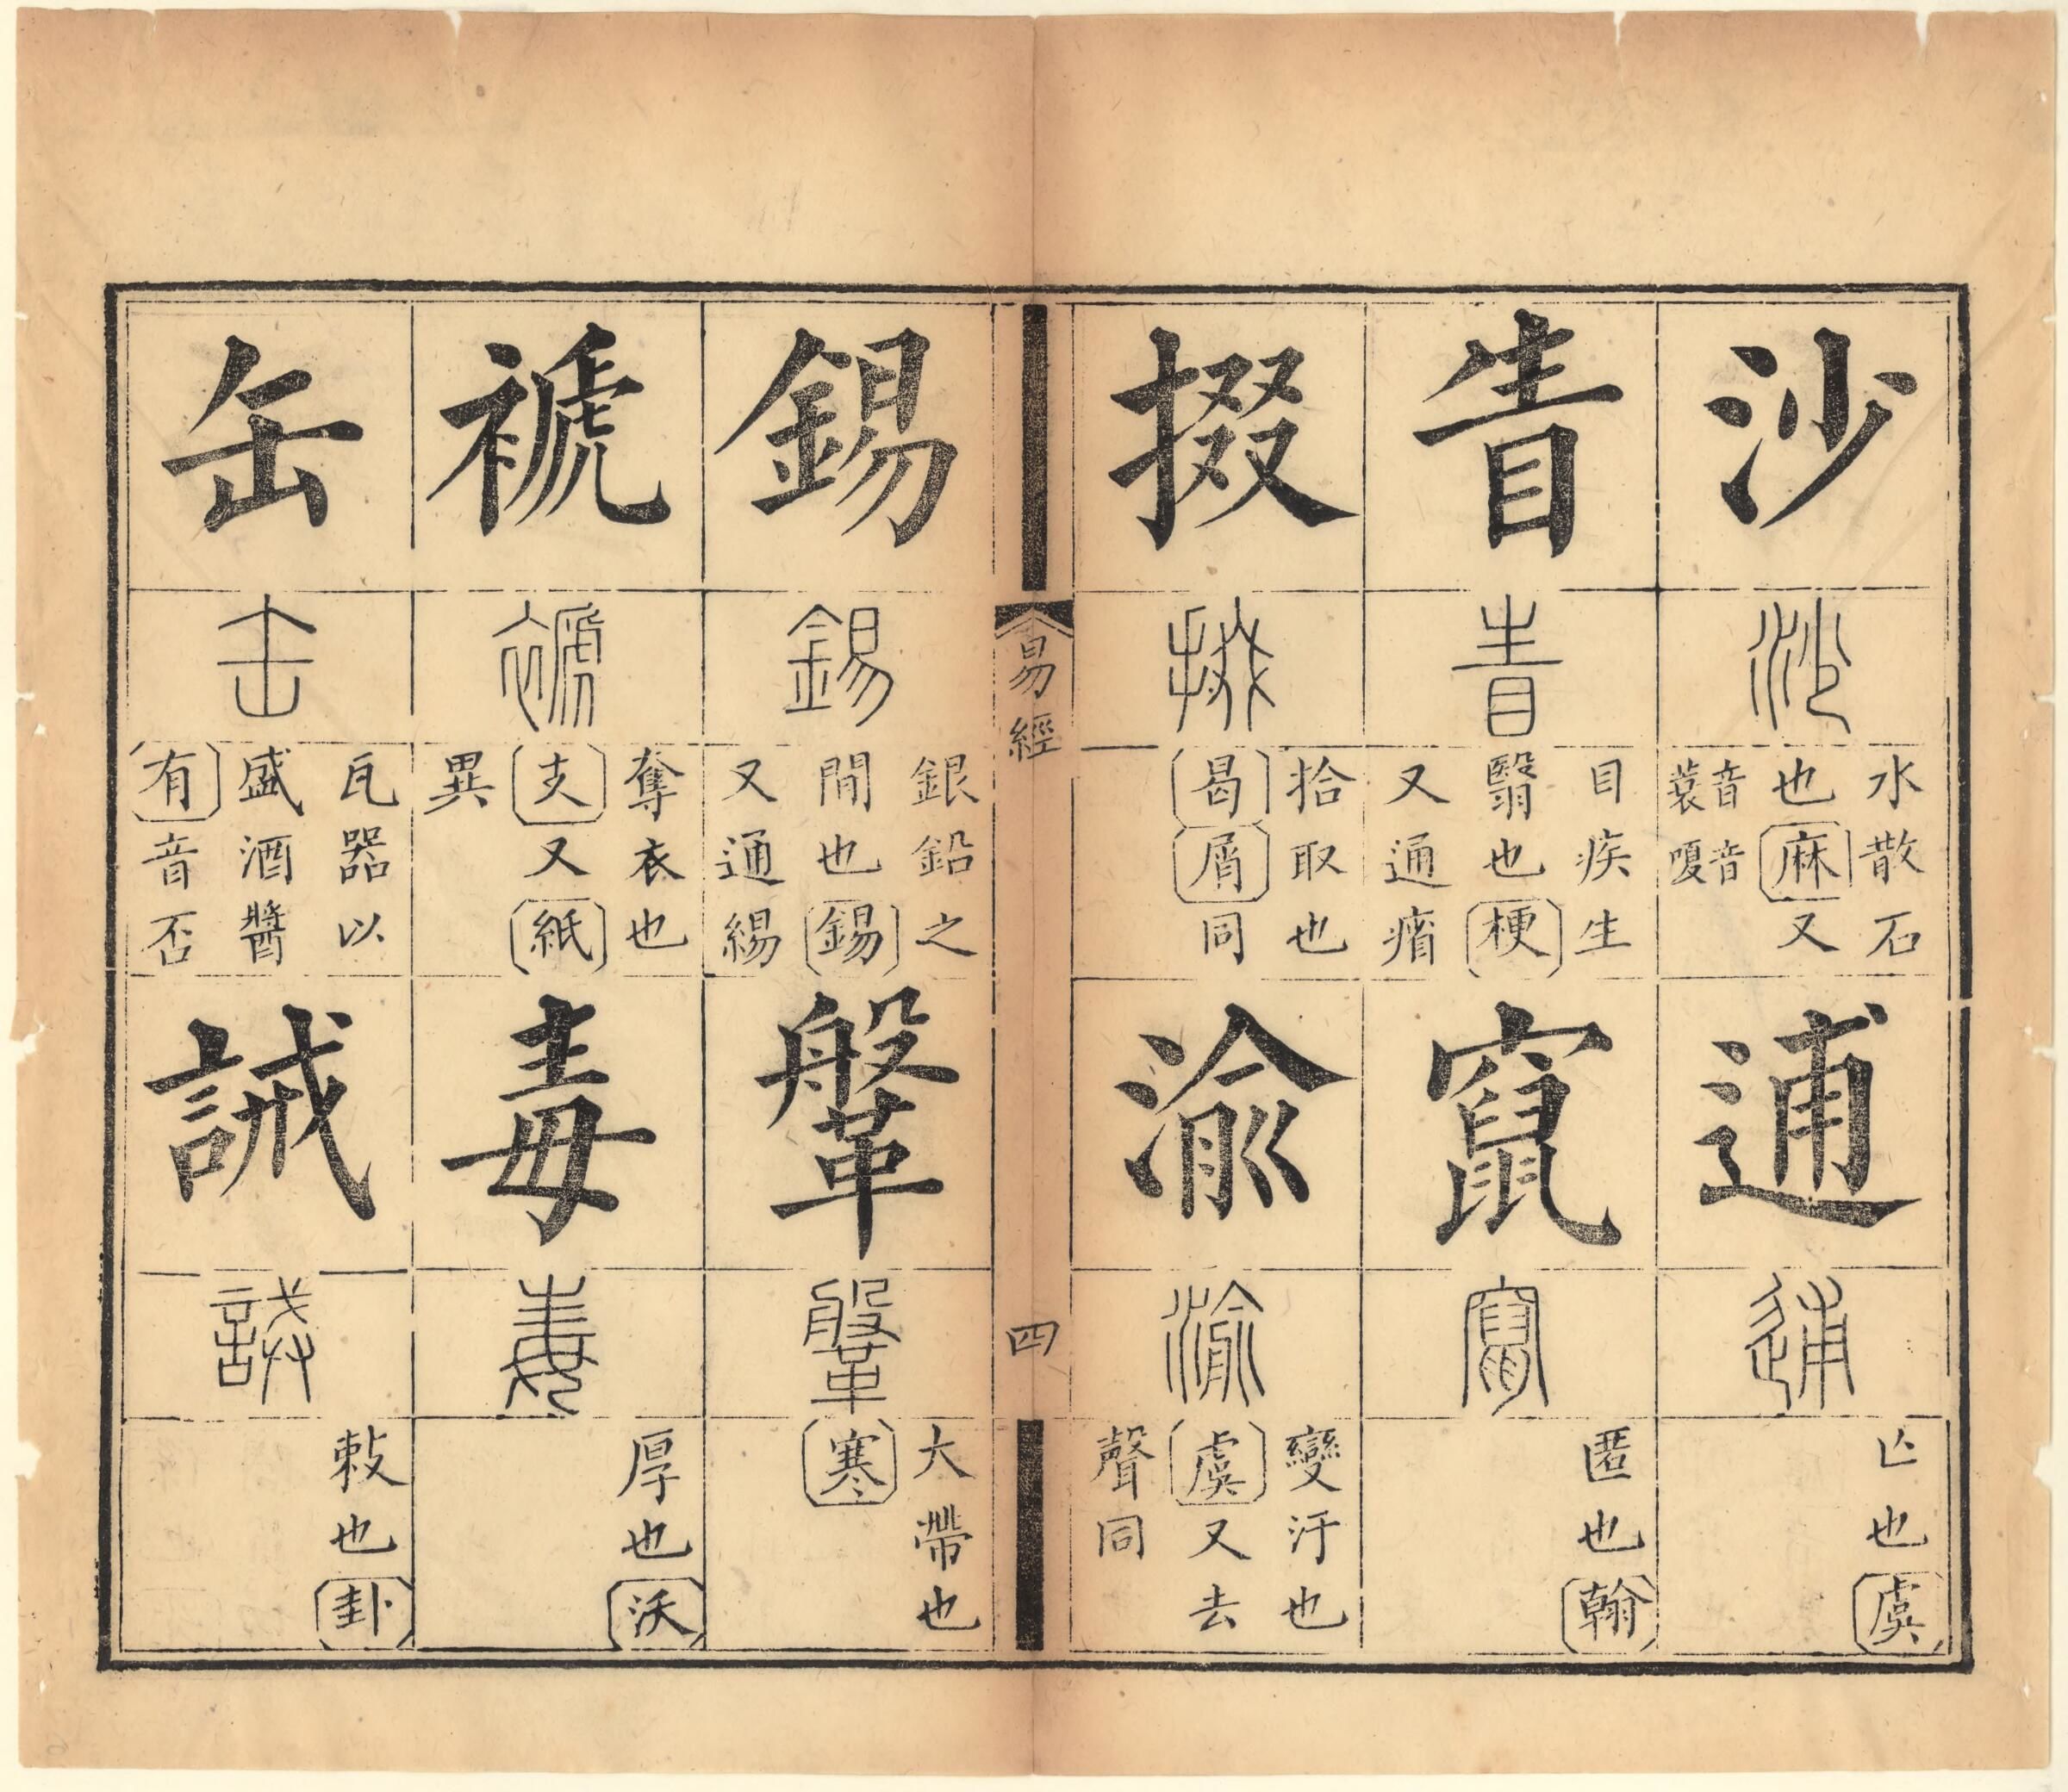 沙
沙
水散石
也麻又
音蓑
音嗄
逋
逋
亾也虞
眚
眚
目疾生
翳也梗
又通
竄
竄
匿也翰
掇
掇
拾取也
曷屑同
渝
渝
變汙也
虞又去
聲同
易經
四
錫
錫
銀鉛之
間也錫
又通緆
鞶
鞶
大帶也
寒
褫
褫
奪衣也
支又紙
異
毒
毒
厚也沃
缶
缶
瓦器以
盛酒醬
有音否
誡
誡
敕也卦